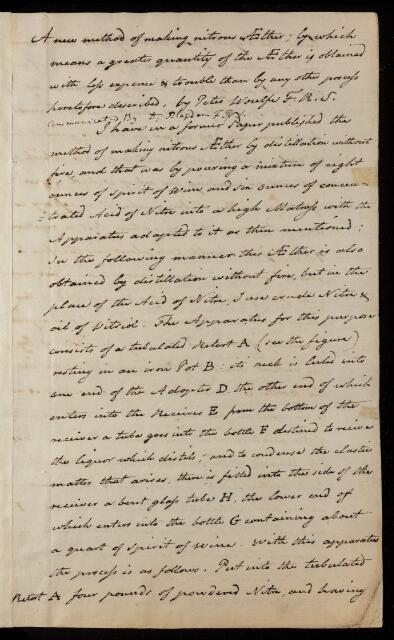 A new method of making nitrous Æther; by which
means a greater quantity of the Æther is obtained
with less expence & trouble than by any other process
heretofore described, by Peter Woulfe F.R.S.
Communicated By
I have in a former Paper published the
method of making nitrous Æther by distillation without
fire, and that was by pouring a mixture of eight
ounces of Spirit of Wine and six ounces of concen-
-trated Acid of Nitre into a high Matrass with the
Apparatus adapted to it as then mentioned:
In the following manner this Æther is also
obtained by distillation without fire, but in the
place of the Acid of Nitre, I use crude Nitre &
oil of Vitriol. The Apparatus for this purpose
consists of a tubulated Retort A (see the figure)
resting in an iron Pot B: its neck is luted into
one end of the Adopter D the other end of which
enters into the Receiver E from the bottom of the
receiver a tube goes into the bottle F destined to receive
the liquor which distils, and to condense the elastic
matter that arises, there is fitted into the side of the
receiver a bent glass tube H, the lower end of
which enters into the bottle G containing about
a quart of Spirit of Wine. With this apparatus
the process is as follows. Put into the tubulated
Retort A four pounds of powdered Nitre, and having